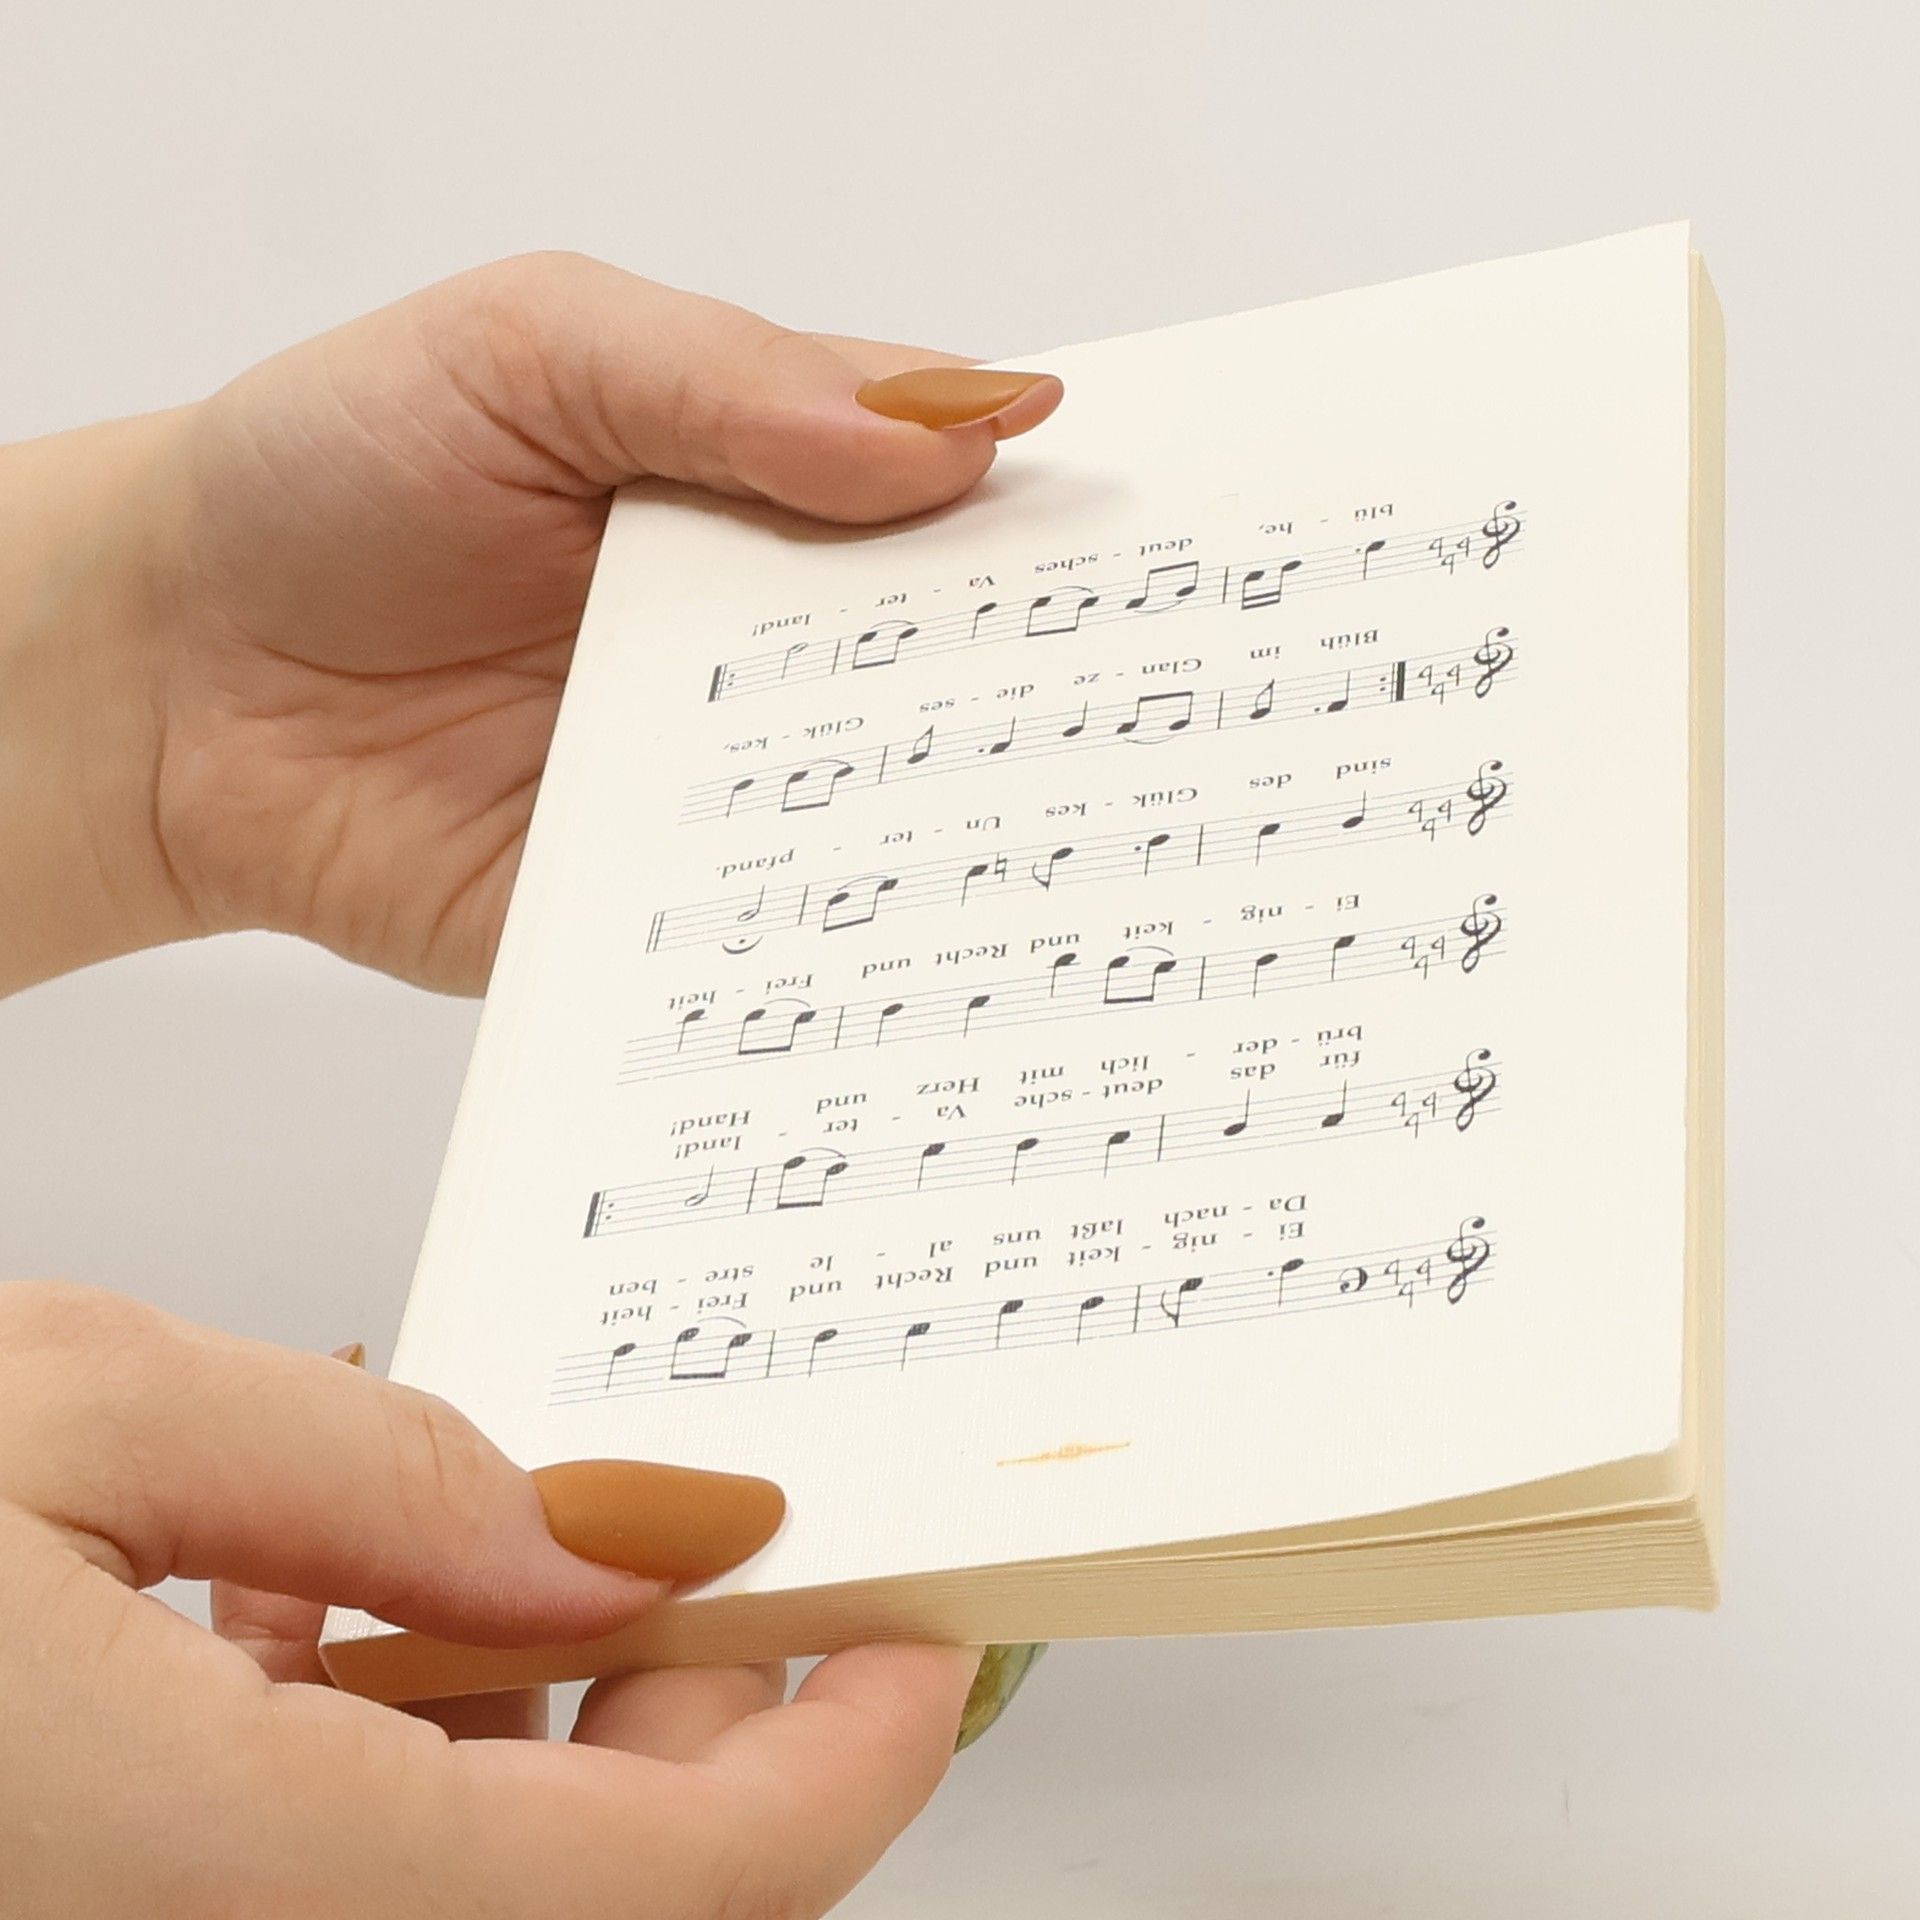 Ei - nig - keit und Recht und Frei - heit
Da - nach laßt uns al - le stre - ben
für das deut - sche Va - ter - land!
brü - der - lich mit Herz und Hand!
Ei - nig - keit und Recht und Frei - heit
sind des Glük - kes Un - ter - pfand.
Blüh im Glan - ze die - ses Glük - kes,
blü - he, deut - sches Va - ter - land!